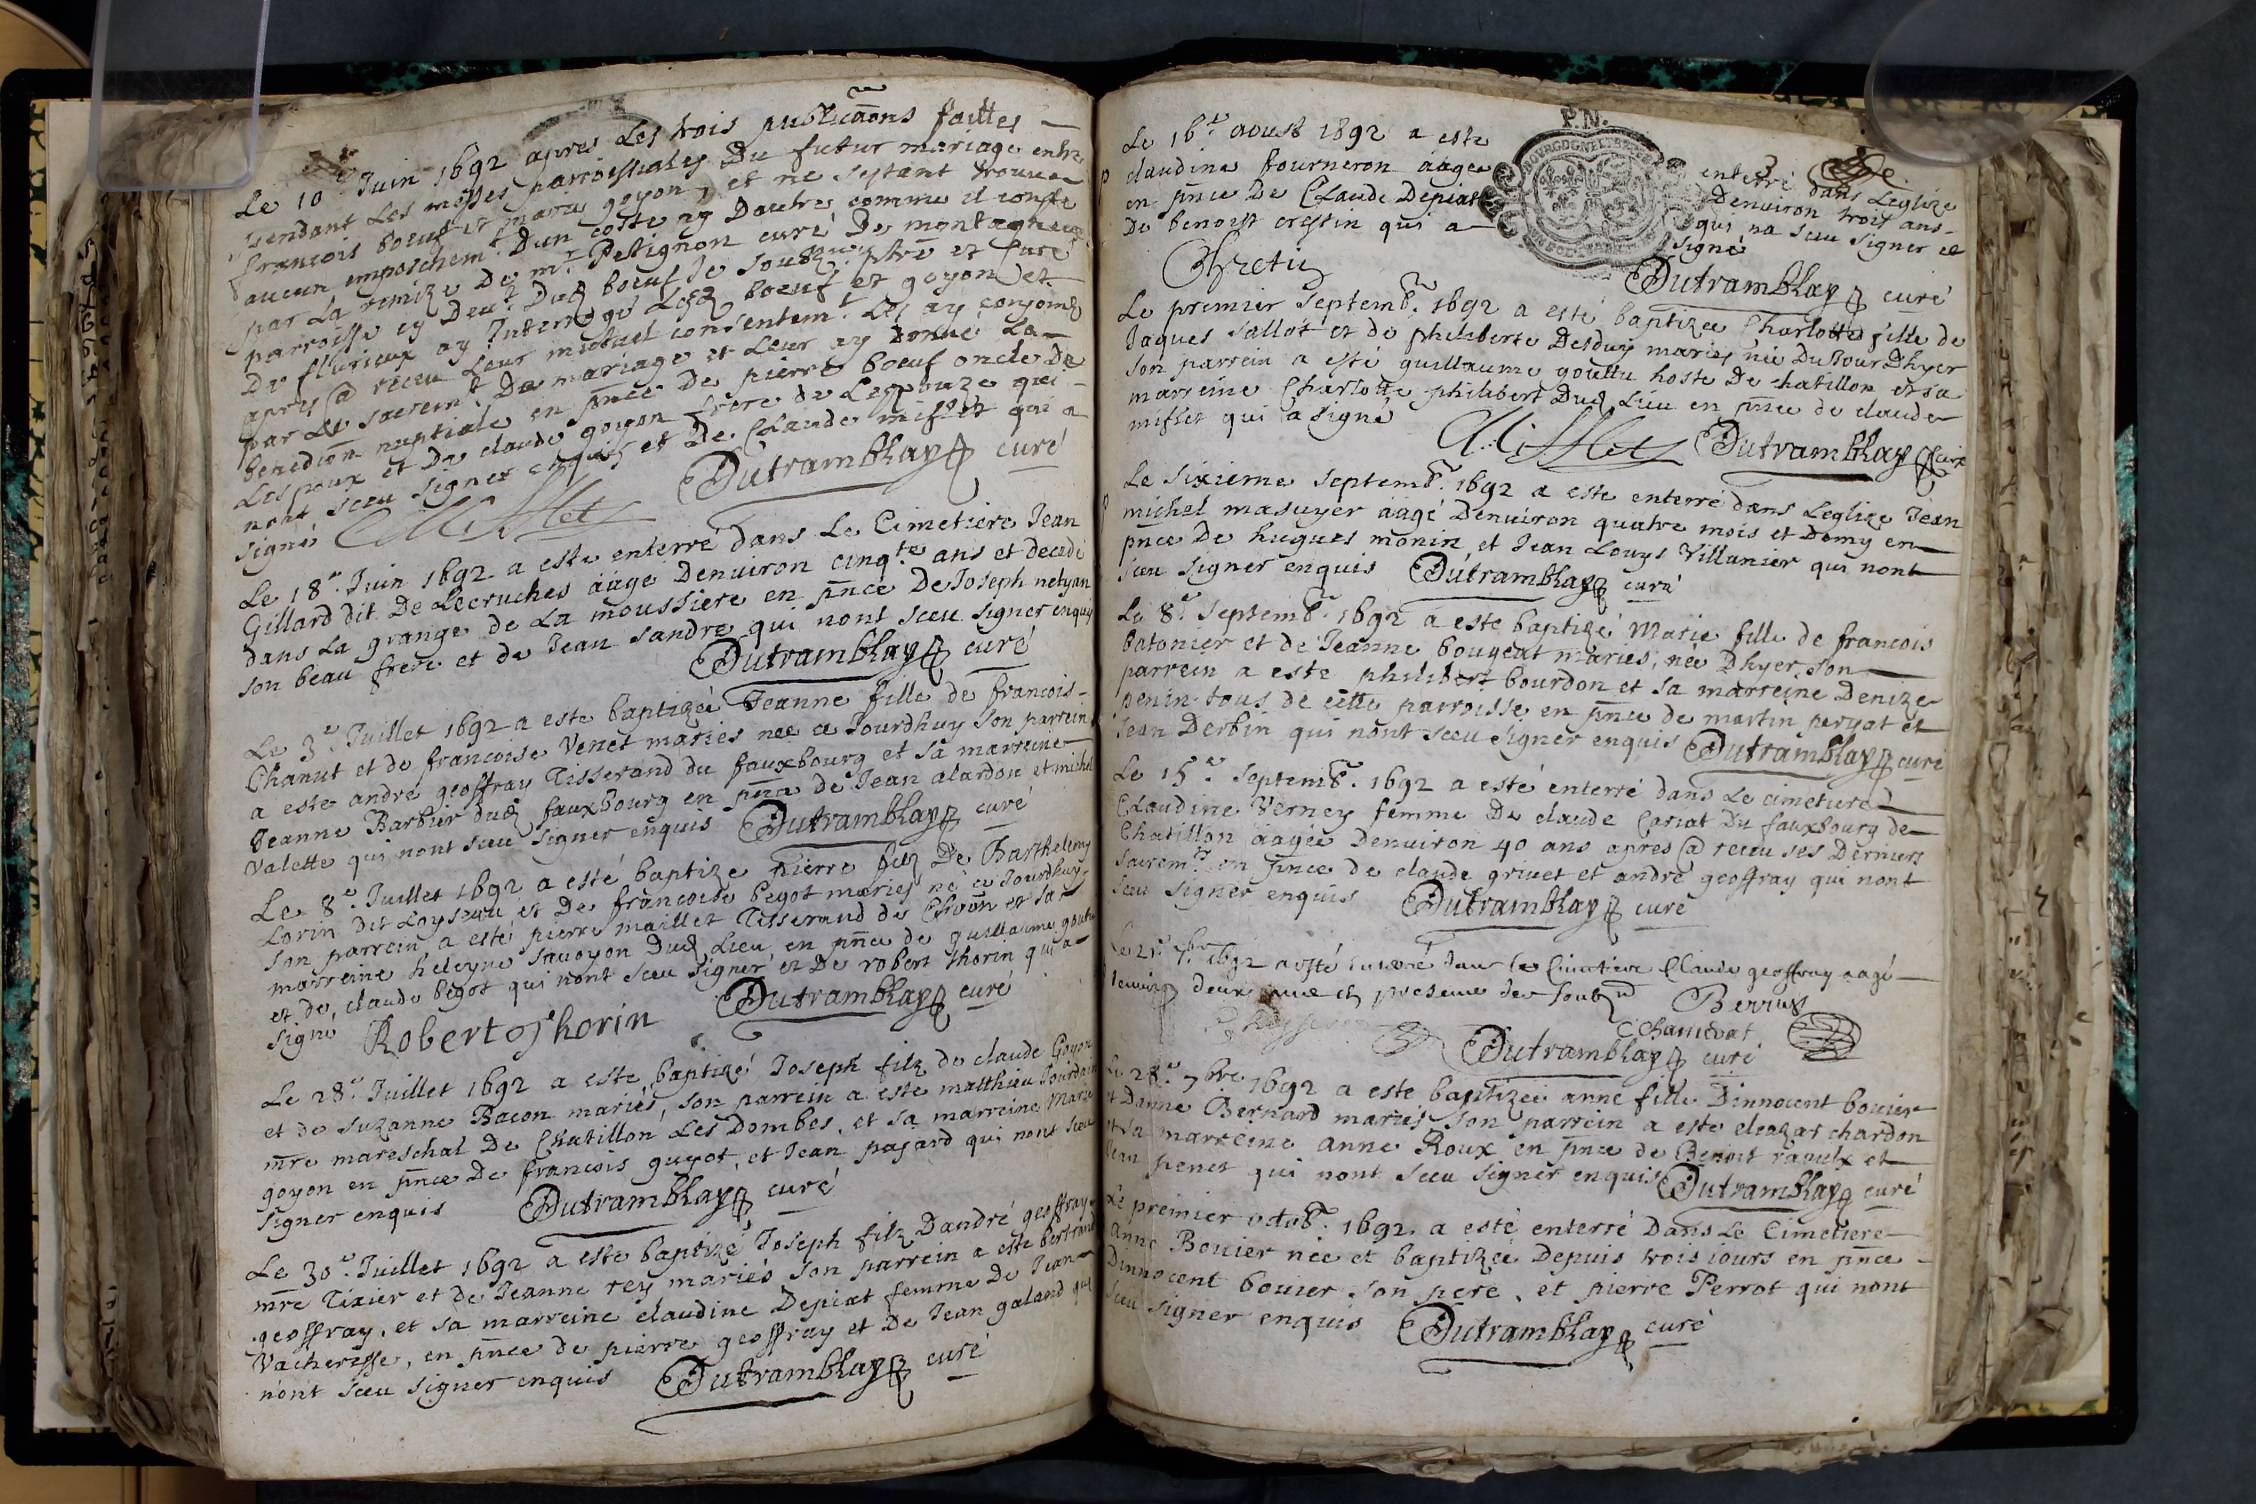 Le 10e Juin 1692 apres Les trois publicãons faittes
pendant Les messes parroissiales Du futur mariage entre
francois boeuf et marie goyon, et ne sestant trouve
aucun empeschemt. Dun coste ny Dautre comme il conste
par La remize De mr. Petignon curé De montagneux
parroisse cy devt. Dud boeuf Je soubzne. ptre et Curé
De flurieux ay Interrogé Lesd boeuf et goyon et
apres @ receu Leur mutuel consentemt. Les ay conjoinds
par Le sacremt. De mariage et Leur ay donné La
benediõn nuptiale en pñce De pierre boeuf oncle De
Lespoux et De claude goyon frere de Lespouze qui
nont sceu signer enquis et De Claude misslet qui a
signé Misslet Dutramblay curé
Le 18e. Juin 1692 a este enterré dans Le Cimetiere Jean
Gillard dit De Lecruches aagé Denuiron cinqte ans et decedé
dans La grange de La moussiere en pñce De Joseph netyan
son beau frere et de Jean sandre qui nont sceu signer enquis
Dutramblay curé
Le 3e. Juillet 1692 a este baptizeé Jeanne fille de francois
Chanut et de francoise Venet mariés nee ce Jourdhuy son parrein
a este andré geoffray Tisserand du fauxbourg et sa marreine
Jeanne Barbier dud fauxbourg en pñce de Jean alardon et michel
Valette qui nont sceu signer enquis Dutramblay curé
Le 8e. Juillet 1692 a esté baptize pierre filz De Barthelemy
Lorin Dit Loyseau et De francoise begot mariés né ce Jourdhuy
son parrein a esté pierre maillet Tisserand de Chõõn et sa
marreine heleyne sauoyon Dud Lieu en pñce de guillaume goutu
et de claude begot qui nont sceu signer et De robert thorin qui a
signé Robert Thorin Dutramblay curé
Le 28e. Juillet 1692 a este baptizé Joseph filz de claude Goyon
et de suzanne Bacon mariés, son parrein a este matthieu Jourdain
mr̃e mareschal De Chatillon Les Dombes, et sa marreine Marie
goyon en pñce De francois guyot, et Jean pasard qui nont sceu
signer enquis Dutramblay curé
Le 30e. Juillet 1692 a este baptizé Joseph filz Dandré geoffray
mr̃e Tixier et de Jeanne rey mariés son parrein a este bertrand
geoffray, et sa marreine claudine Depiat femme De Jean
Vacheresse, en pñce de pierre geoffray et De Jean galand qui
nont sceu signer enquis Dutramblay curé
P.N.
Le 16e. aoust 1692 a este enterré dans Leglize
claudine fourneron aagee Denuiron trois ans
en pñce De Claude Depiat qui na sceu signer et
De benoist crestin qui a signé
Chretin Dutramblay curé
Le premier Septemb. 1692 a esté baptizee Charlotte fille de
Jaques sallot et de philiberte Desduy mariés née Du Jour Dhyer
son parrein a esté guillaume gouttu hoste De chatillon et sa
marreine Charlotte philibert Dud Lieu en pñce de claude
misslet qui a signé Misslet Dutramblay Curé
Le sixieme septemb. 1692 a este enterré dans Leglize Jean
michel masuyer aagé Denuiron quatre mois et Demy en
pnce De hugues monin et Jean Louys Villanier qui nont
sceu signer enquis Dutramblay curé
Le 8e. septemb. 1692 a este baptizé Marie fille de francois
batonier et de Jeanne bougeat mariés, née Dhyer son
parrein a este philibert bourdon et sa marreine Denize
penin tous de cette parroisse en pñce de martin peryat et
Jean Derbin qui nont sceu signer enquis Dutramblay curé
Le 15e. septemb. 1692 a esté enterré dans Le cimetiere
Claudine Verney femme De claude Cariat Du fauxbourg de
Chatillon aagée Denuiron 40 ans apres @ receu ses Derniers
sacremts en pñce de claude griuet et andre geoffray qui nont
sceu signer enquis Dutramblay curé
Le 21e 7bre 1692 a esté enterré dans le Cimetiere Claude geoffray aagé
denuiron deux ans en presence des soubznes
Berrux
Chanevat
Dutramblay curé
Le 28e. 7bre 1692 a este baptizée anne fille Dinnocent bouier
et Danne Bernard mariés son parrein a este eleazar chardon
et sa marreine anne Roux en pñce de Benoit raoulx et
Jean penet qui nont sceu signer enquis Dutramblay curé
Le premier octob. 1692 a esté enterré Dans Le Cimetiere
anne Bouier née et baptizeé Depuis trois iours en pñce
Dinnocent bouier son pere, et pierre Perrot qui nont
sceu signer enquis Dutramblay curé